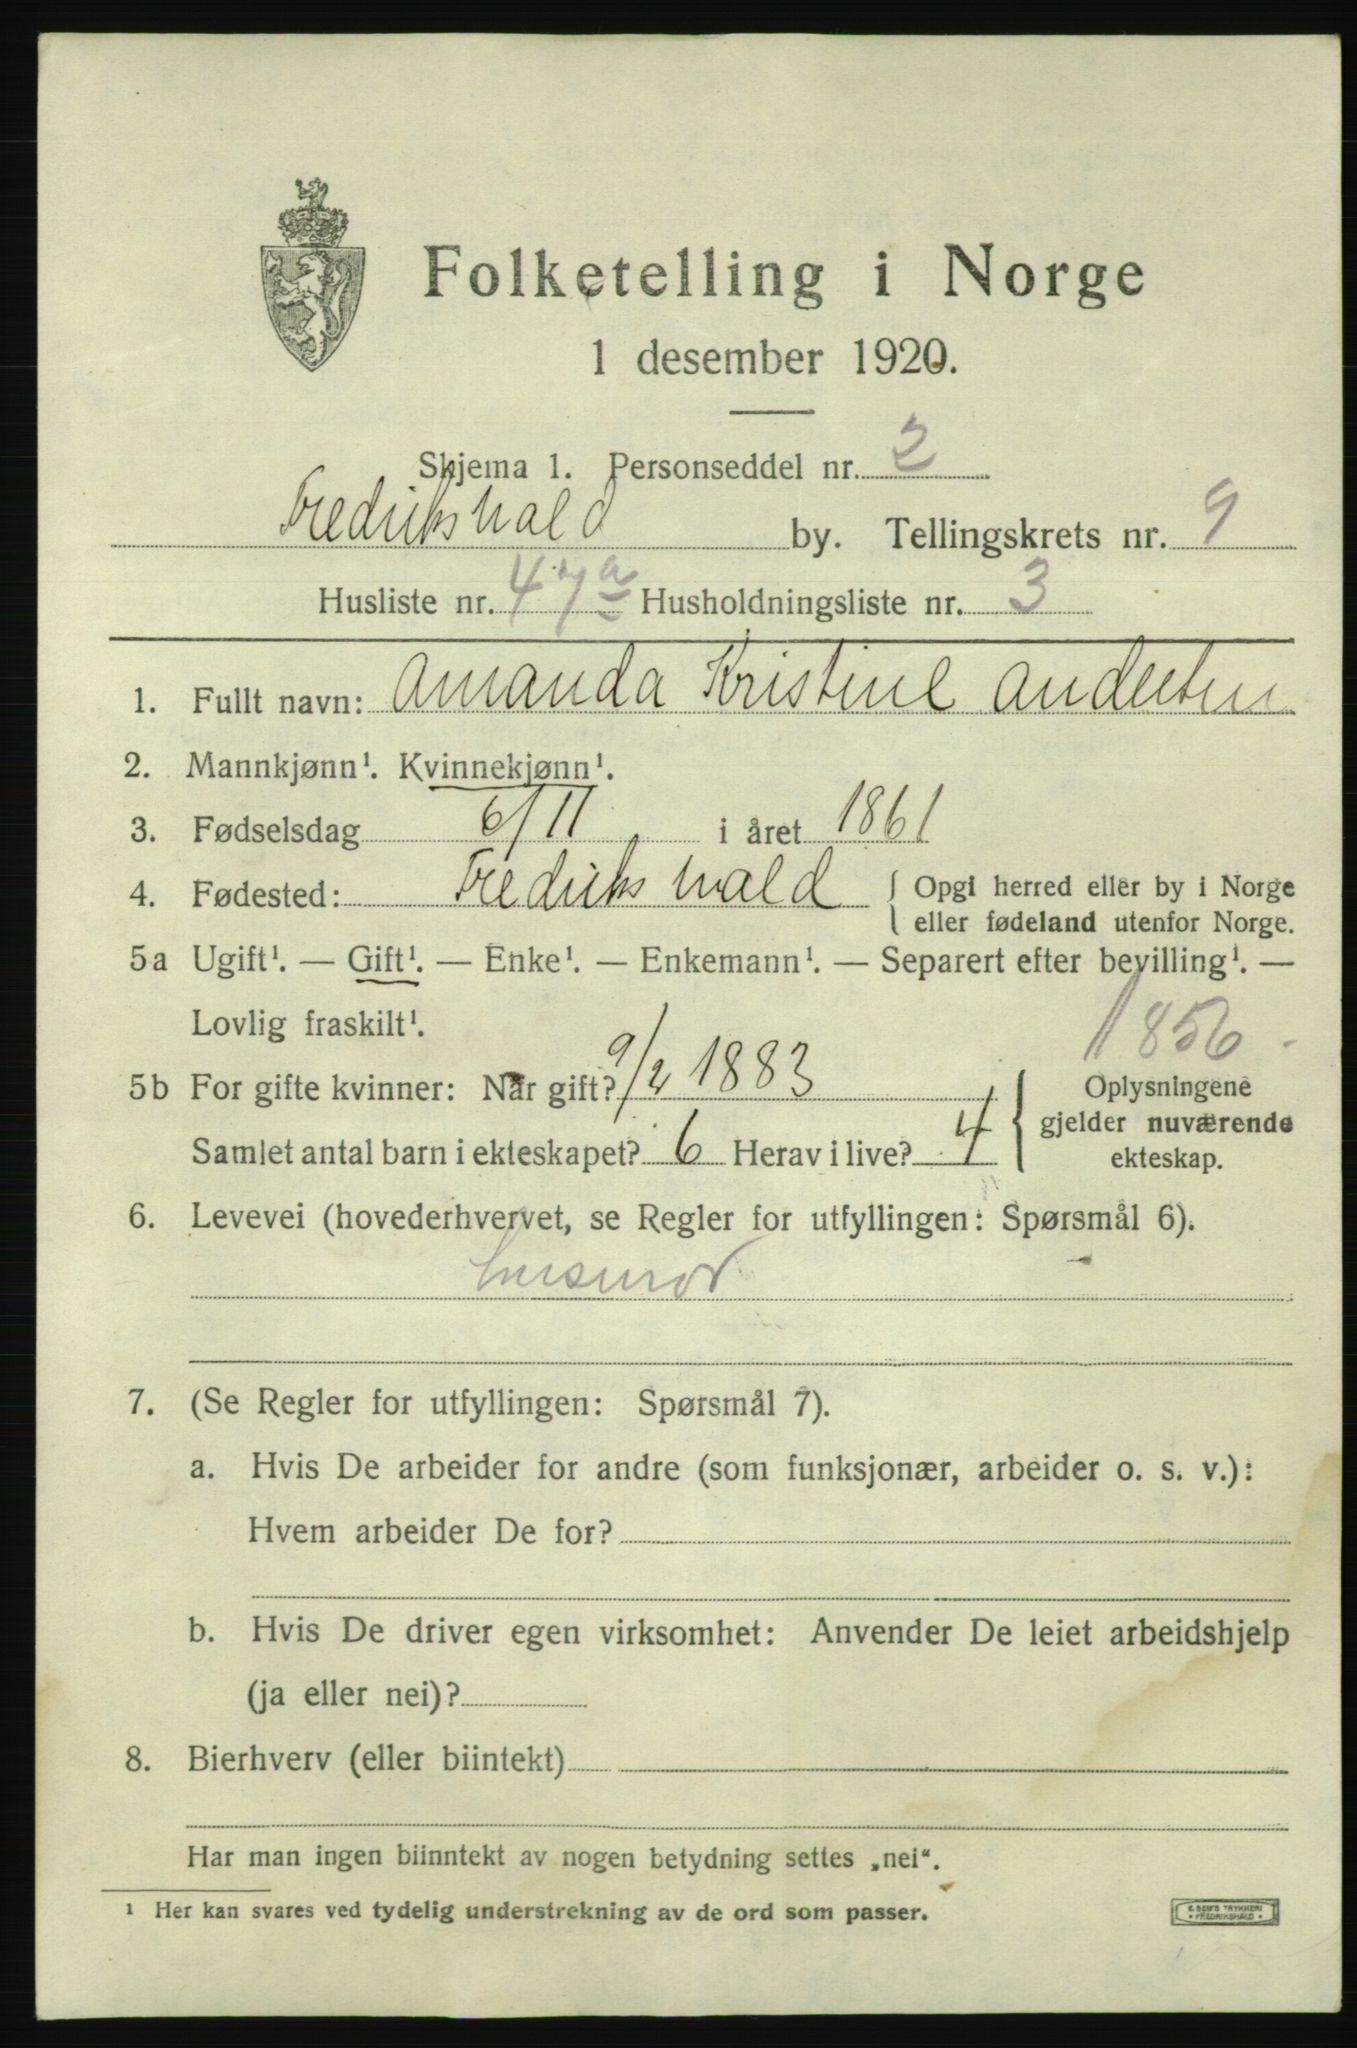 Folketelling i Norge
1 desember 1920.
Skjema 1. Personseddel nr. 2
Fredrikshald by. Tellingskrets nr. 9
Husliste nr. 47a Husholdningsliste nr. 3
1. Fullt navn: Amanda Kristine Andersen
2. Mannkjønn¹. Kvinnekjønn¹.
3. Fødselsdag 6/11 i året 1861
4. Fødested: Fredrikshald { Opgi herred eller by i Norge
eller fødeland utenfor Norge.
5a Ugift¹. — Gift¹. — Enke¹. — Enkemann¹. — Separert efter bevilling¹. —
Lovlig fraskilt¹.
1856
5b For gifte kvinner: Når gift? 9/2 1883
Samlet antal barn i ekteskapet? 6 Herav i live? 4
{ Oplysningene
gjelder nuværende
ekteskap.
6. Levevei (hovederhvervet, se Regler for utfyllingen: Spørsmål 6).
husmor
7. (Se Regler for utfyllingen: Spørsmål 7).
a. Hvis De arbeider for andre (som funksjonær, arbeider o. s. v.):
Hvem arbeider De for?
b. Hvis De driver egen virksomhet: Anvender De leiet arbeidshjelp
(ja eller nei)?
8. Bierhverv (eller biintekt)
Har man ingen biinntekt av nogen betydning settes „nei“.
¹ Her kan svares ved tydelig understrekning av de ord som passer.
E. SEM'S TRYKKERI
• FREDRIKSHALD •